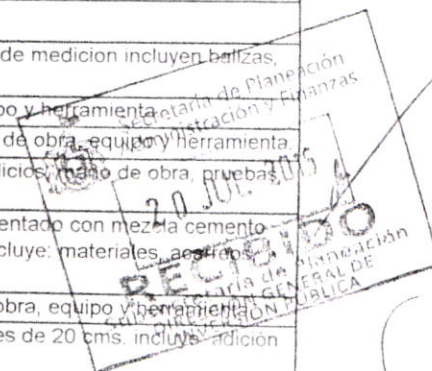 de medicion incluyen balizas,
po y herramienta
de obra, equipo y herramienta.
mano de obra, pruebas
entado con mezcla cemento
cluye: materiales, acarreos,
obra, equipo y herramienta
es de 20 cms. incluye adición
Secretaría de Planeación
Administración y Finanzas
20 JUL. 2015
RECIBIDO
Subsecretaría de Planeación
DIRECCIÓN GENERAL DE
INVERSIÓN PÚBLICA